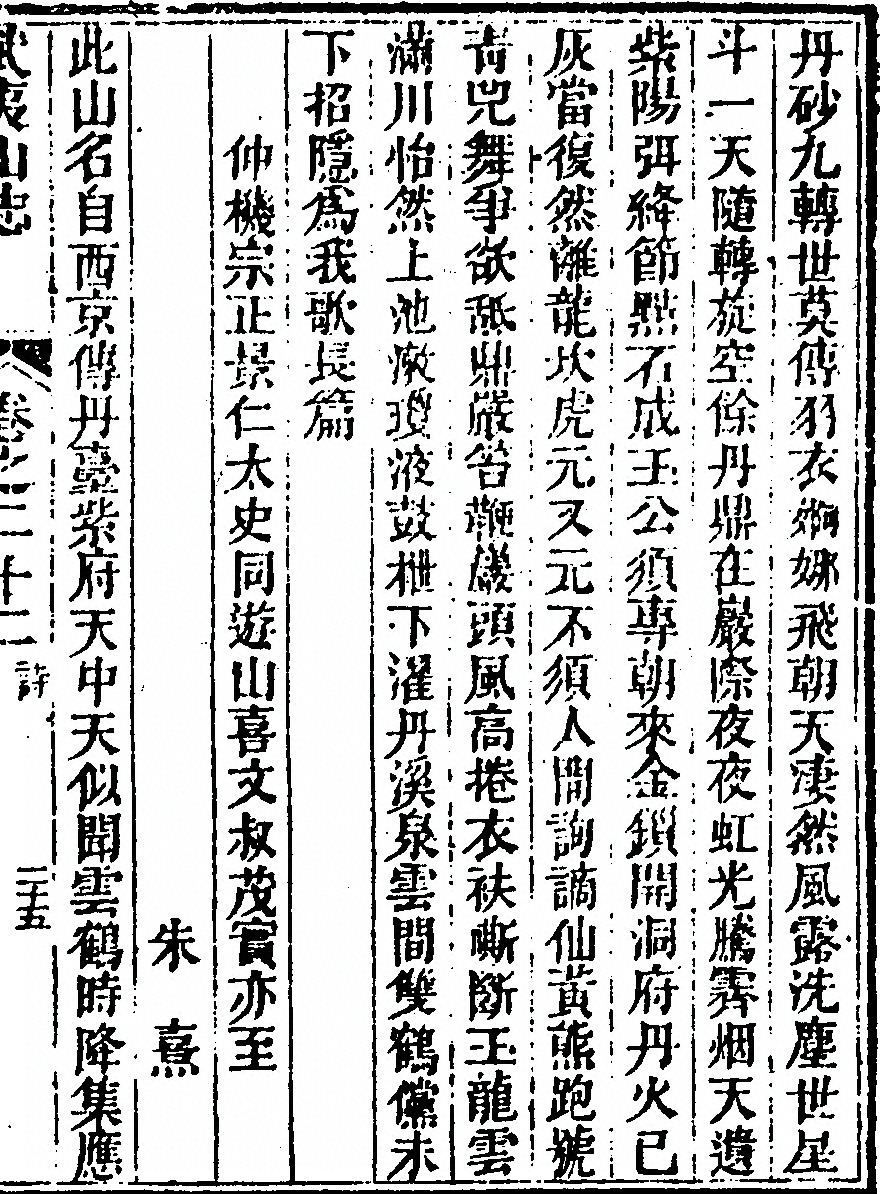 丹砂九轉世莫傳羽衣婀娜飛朝天淒然風露洗塵世星
斗一天隨轉旋空餘丹鼎在巖際夜夜虹光騰霽烟天遺
紫陽弭絳節點石成玉公須專朝來金鎖開洞府丹火已
灰當復然離龍坎虎元又元不須人間詢謫仙黃熊跑號
青兕舞爭欲舐鼎嚴笞鞭儀頭風高捲衣袂嘶斷玉龍雲
滿川怡然上池漱瓊液鼓枻下濯丹溪泉雲間雙鶴儻未
下招隱爲我歌長篇
仲機宗正景仁太史同遊山喜文叔茂實亦至
朱熹
此山名自西京傳丹臺紫府天中天似聞雲鶴時降集應
武夷山志
卷之二十二
詩
二十五